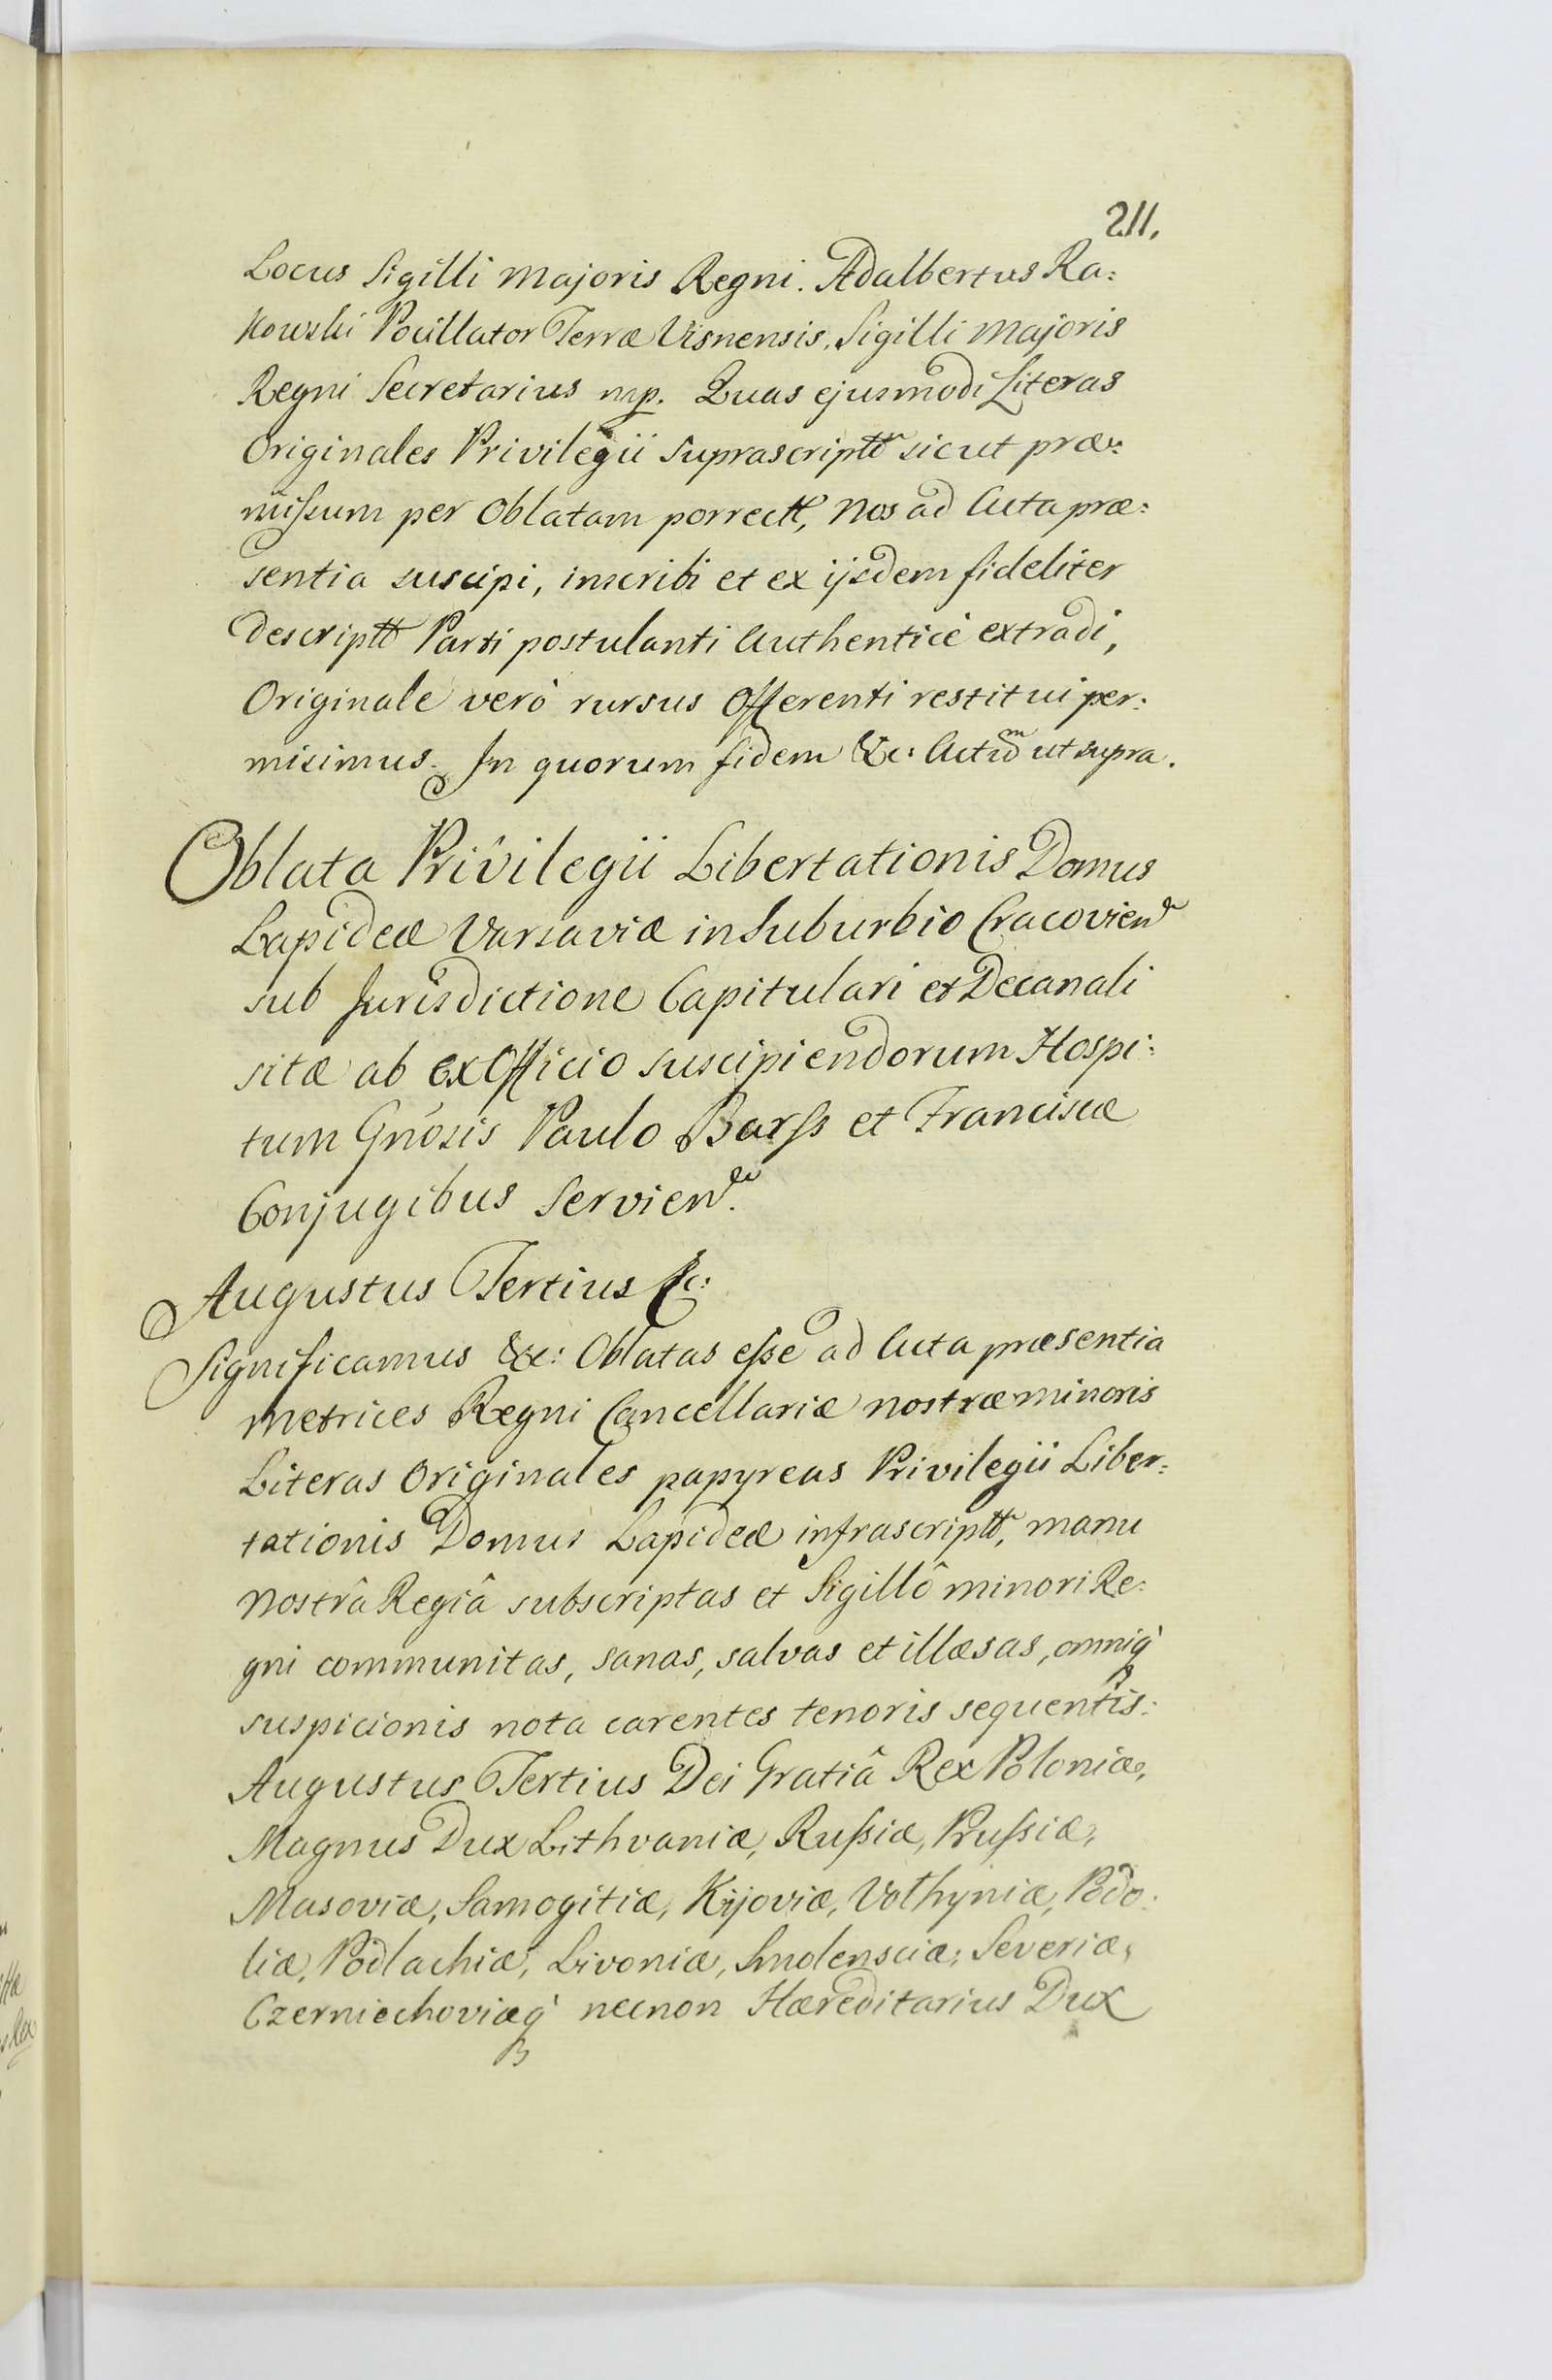 211.
Locus Sigilli Majoris Regni. Adalbertus Ra:
kowski Pocillator Terræ Visnensis, Sigilli Majoris
Regni Secretarius mp. Quas ejusmodi Literas
Originales Privilegii suprascriptt sicut præ:
missum per Oblatam porrectt, Nos ad Acta præ:
sentia suscipi, inscribi et ex ijsdem fideliter
descriptt Parti postulanti Authenticè extradi,
Originale verò rursus Offerenti restitui per:
misimus. In quorum fidem &c: Actum ut supra.
Oblata Privilegii Libertationis Domus
Lapideæ Varsaviæ in Suburbio Cracovien
sub Jurisdictione Capitulari et Decanali
sitæ ab ex Officio suscipiendorum Hospi:
tum Gnósis Paulo Barss et Franciscæ
Conjugibus Servien.
Augustus Tertius &c:
Significamus &c: Oblatas esse ad Acta præsentia
Metrices Regni Cancellariæ nostræ minoris
Literas Originales papyreas Privilegii Liber:
tationis Domus Lapideæ infrascriptt, manu
Nostrâ Regiâ subscriptas et Sigillô minori Re:
gni communitas, sanas, salvas et illæsas, omniq̀
suspicionis nota carentes tenoris sequentis:
Augustus Tertius Dei Gratiâ Rex Poloniæ,
Magnus Dux Lithvaniæ, Russiæ, Prussiæ,
Masoviæ, Samogitiæ, Kijoviæ, Volhyniæ, Podo:
liæ, Podlachiæ, Livoniæ, Smolensciæ, Severiæ,
Czerniechoviæq̀ necnon Hæreditarius Dux